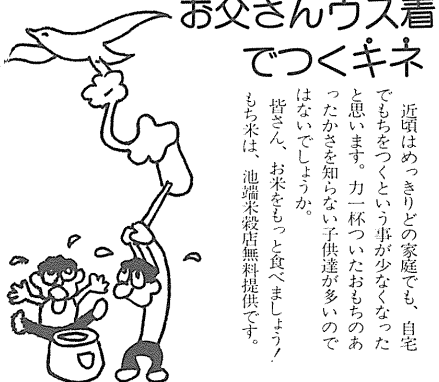 お父さんウス着
でつくキネ
近頃はめっきりどの家庭でも、自宅
でもちをつくという事が少なくなった
と思います。力一杯ついたおもちのあ
ったかさを知らない子供達が多いので
はないでしょうか。
皆さん、お米をもっと食べましょう!
もち米は、池端米穀店無料提供です。